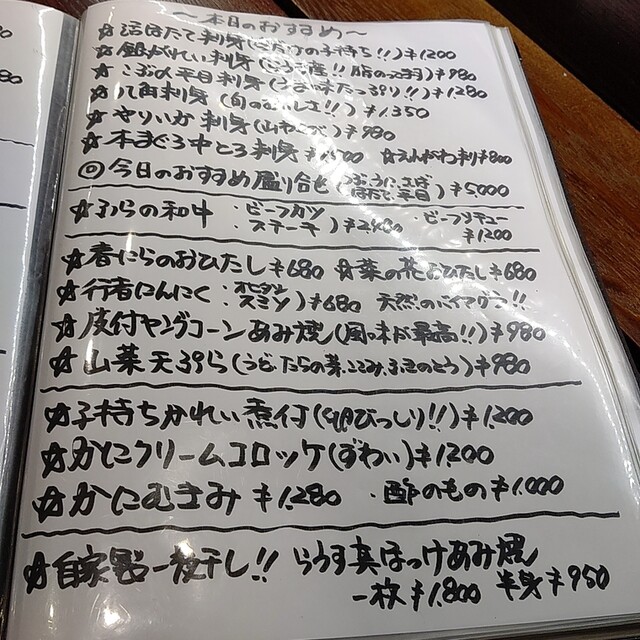 ～本日のおすすめ～
☆活ほたて刺身(だけの子持ち!!)¥1200
☆銀がれい刺身(!!脂の)¥980
☆こぶ〆平目刺身(たっぷり!!)¥1,280
☆八角刺身(旬の!!)¥1,350
☆やりいか刺身()¥980
☆本まぐろ中とろ刺身 ☆えんがわ刺¥800
◎今日のおすすめ盛り合せ( ほたて、平目)¥5000
☆ふらの和牛(・ビーフカツ ・ステーキ)¥2480 ・ビーフシチュー ¥1,200
☆春にらのおひたし¥680 ☆菜の花おひたし¥680
☆行者にんにく(・オヒタシ ・スミソ)¥680 天然のバイアグラ!!
☆皮付ヤングコーンあみ焼(風味が最高!!)¥980
☆山菜天ぷら(うど、たらの芽、こごみ、ふきのとう)¥980
☆子持ちかれい煮付(卵びっしり!!)¥1,200
☆かにクリームコロッケ(ずわい)¥1200
☆かにむきみ ¥1,280 ・酢のもの¥1,000
☆自家製一夜干し!! らうす真ほっけあみ焼
一枚¥1,800 半身¥950